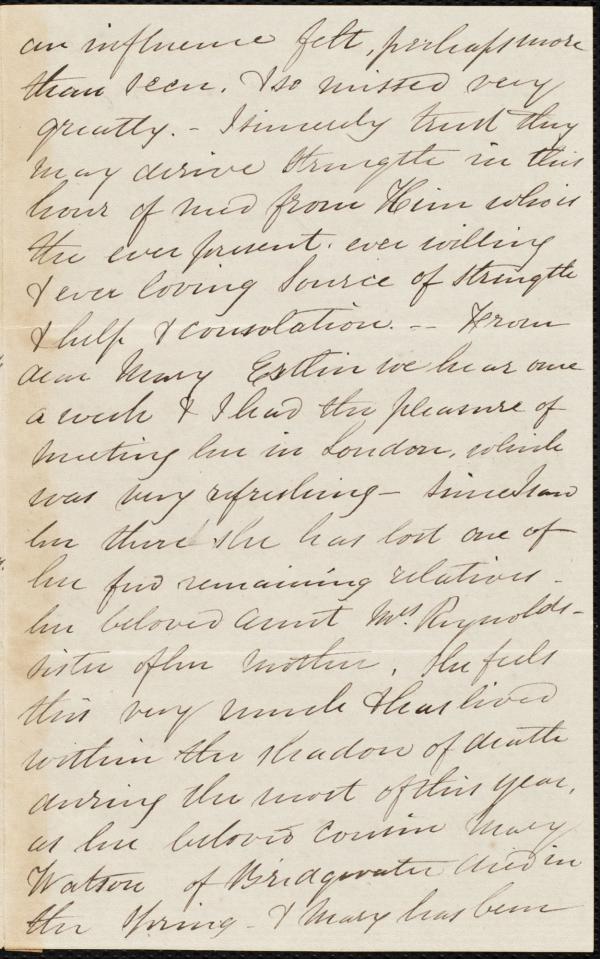 an influence felt, perhaps more
than seen. & so missed very
greatly. - I sincerely trust they
may derive strength in this
hour of need from Him who is
the ever present. ever willing
& ever loving Source of strength
& help & consolation. -- From
dear Mary Estlin we hear once
a week & I had the pleasure of
meeting her in London, which
was very refreshing - since I saw
her there she has lost one of
her few remaining relatives -
her beloved aunt Mrs. Reynolds -
sister of her mother. She feels
this very much & has lived
within the shadow of death
during the most of this year,
as her beloved cousin Mary
Watson of Bridgwater died in
the Spring - & Mary has been